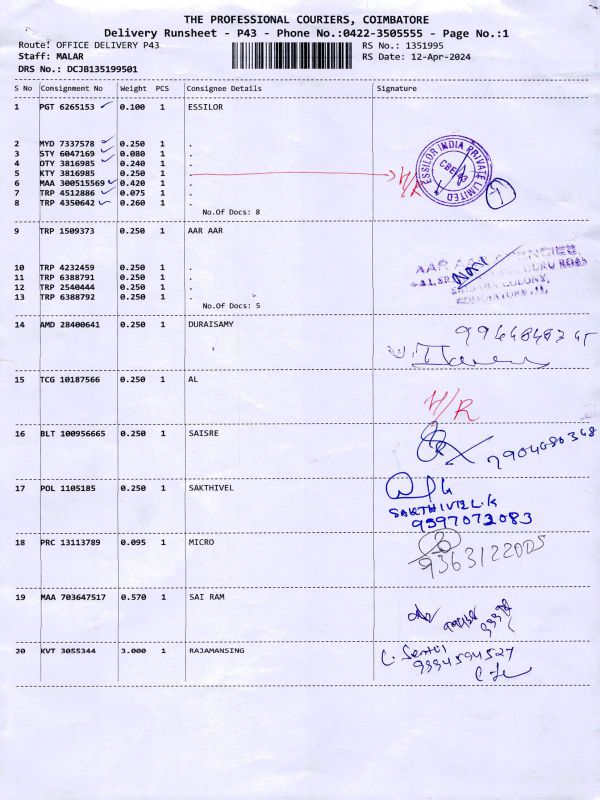 THE PROFESSIONAL COURIERS, COIMBATORE
Delivery Runsheet - P43 - Phone No.:0422-3505555 - Page No.:1
Route: OFFICE DELIVERY P43 RS No.: 1351995
Staff: MALAR RS Date: 12-Apr-2024
DRS No.: DCJB135199501
S No Consignment No Weight PCS Consignee Details Signature
1 PGT 6265153 0.100 1 ESSILOR
2 MYD 7337578 0.250 1 .
3 STY 6047169 0.080 1 .
4 DTY 3816985 0.240 1 .
5 KTY 3816985 0.250 1 . H/R
6 MAA 300515569 0.420 1 .
7 TRP 4512886 0.075 1 .
8 TRP 4350642 0.260 1 .
ESSILOR INDIA PRIVATE LIMITED
CBE-43
7
No.Of Docs: 8
9 TRP 1509373 0.250 1 AAR AAR
10 TRP 4232459 0.250 1 .
11 TRP 6388791 0.250 1 .
12 TRP 2540444 0.250 1 .
13 TRP 6388792 0.250 1 .
No.Of Docs: 5
14 AMD 28400641 0.250 1 DURAISAMY
15 TCG 10187566 0.250 1 AL
H/R
16 BLT 100956665 0.250 1 SAISRE
17 POL 1105185 0.250 1 SAKTHIVEL
SAKTHIVEL.K
9597072083
18 PRC 13113789 0.095 1 MICRO
19 MAA 703647517 0.570 1 SAI RAM
20 KVT 3055344 3.000 1 RAJAMANSING